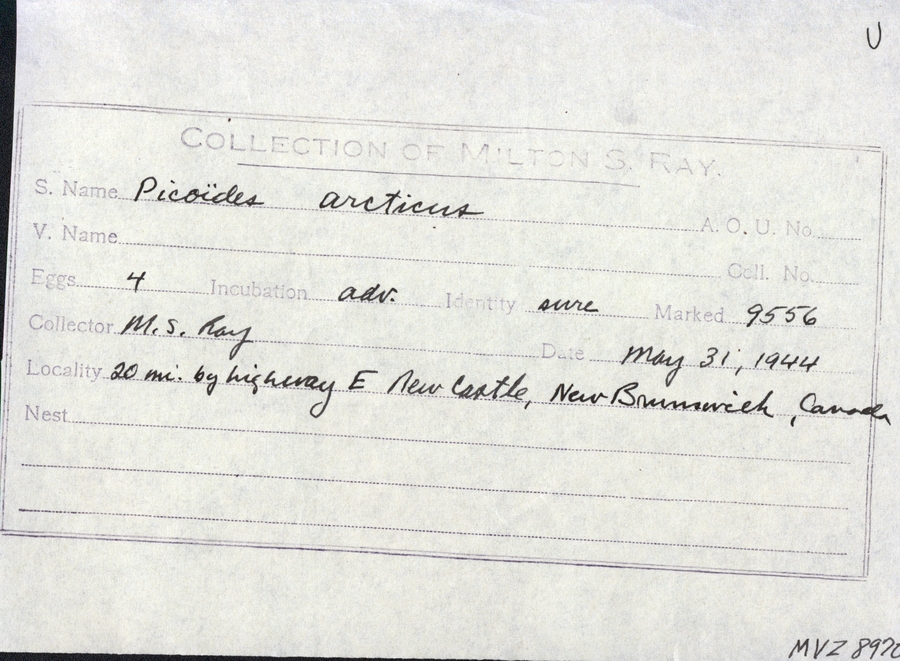 U
COLLECTION OF MILTON S. RAY.
S. Name Picoïdes arcticus A. O. U. No.
V. Name Coll. No.
Eggs 4 Incubation adv. Identity sure Marked 9556
Collector M. S. Ray Date May 31, 1944
Locality 20 mi. by highway E New Castle, New Brunswick, Canada
Nest
MVZ 8970